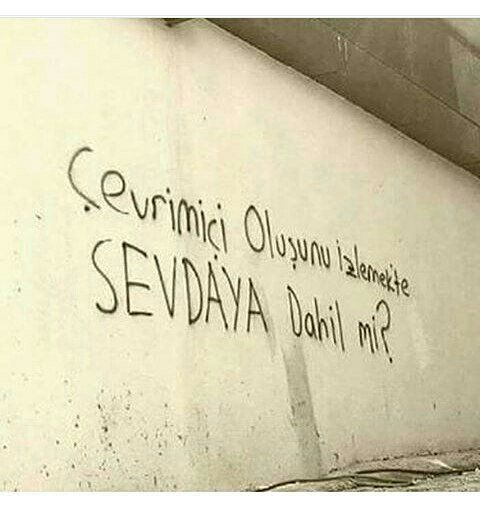 Çevrimiçi Oluşunu izlemekte
SEVDAYA Dahil mi?